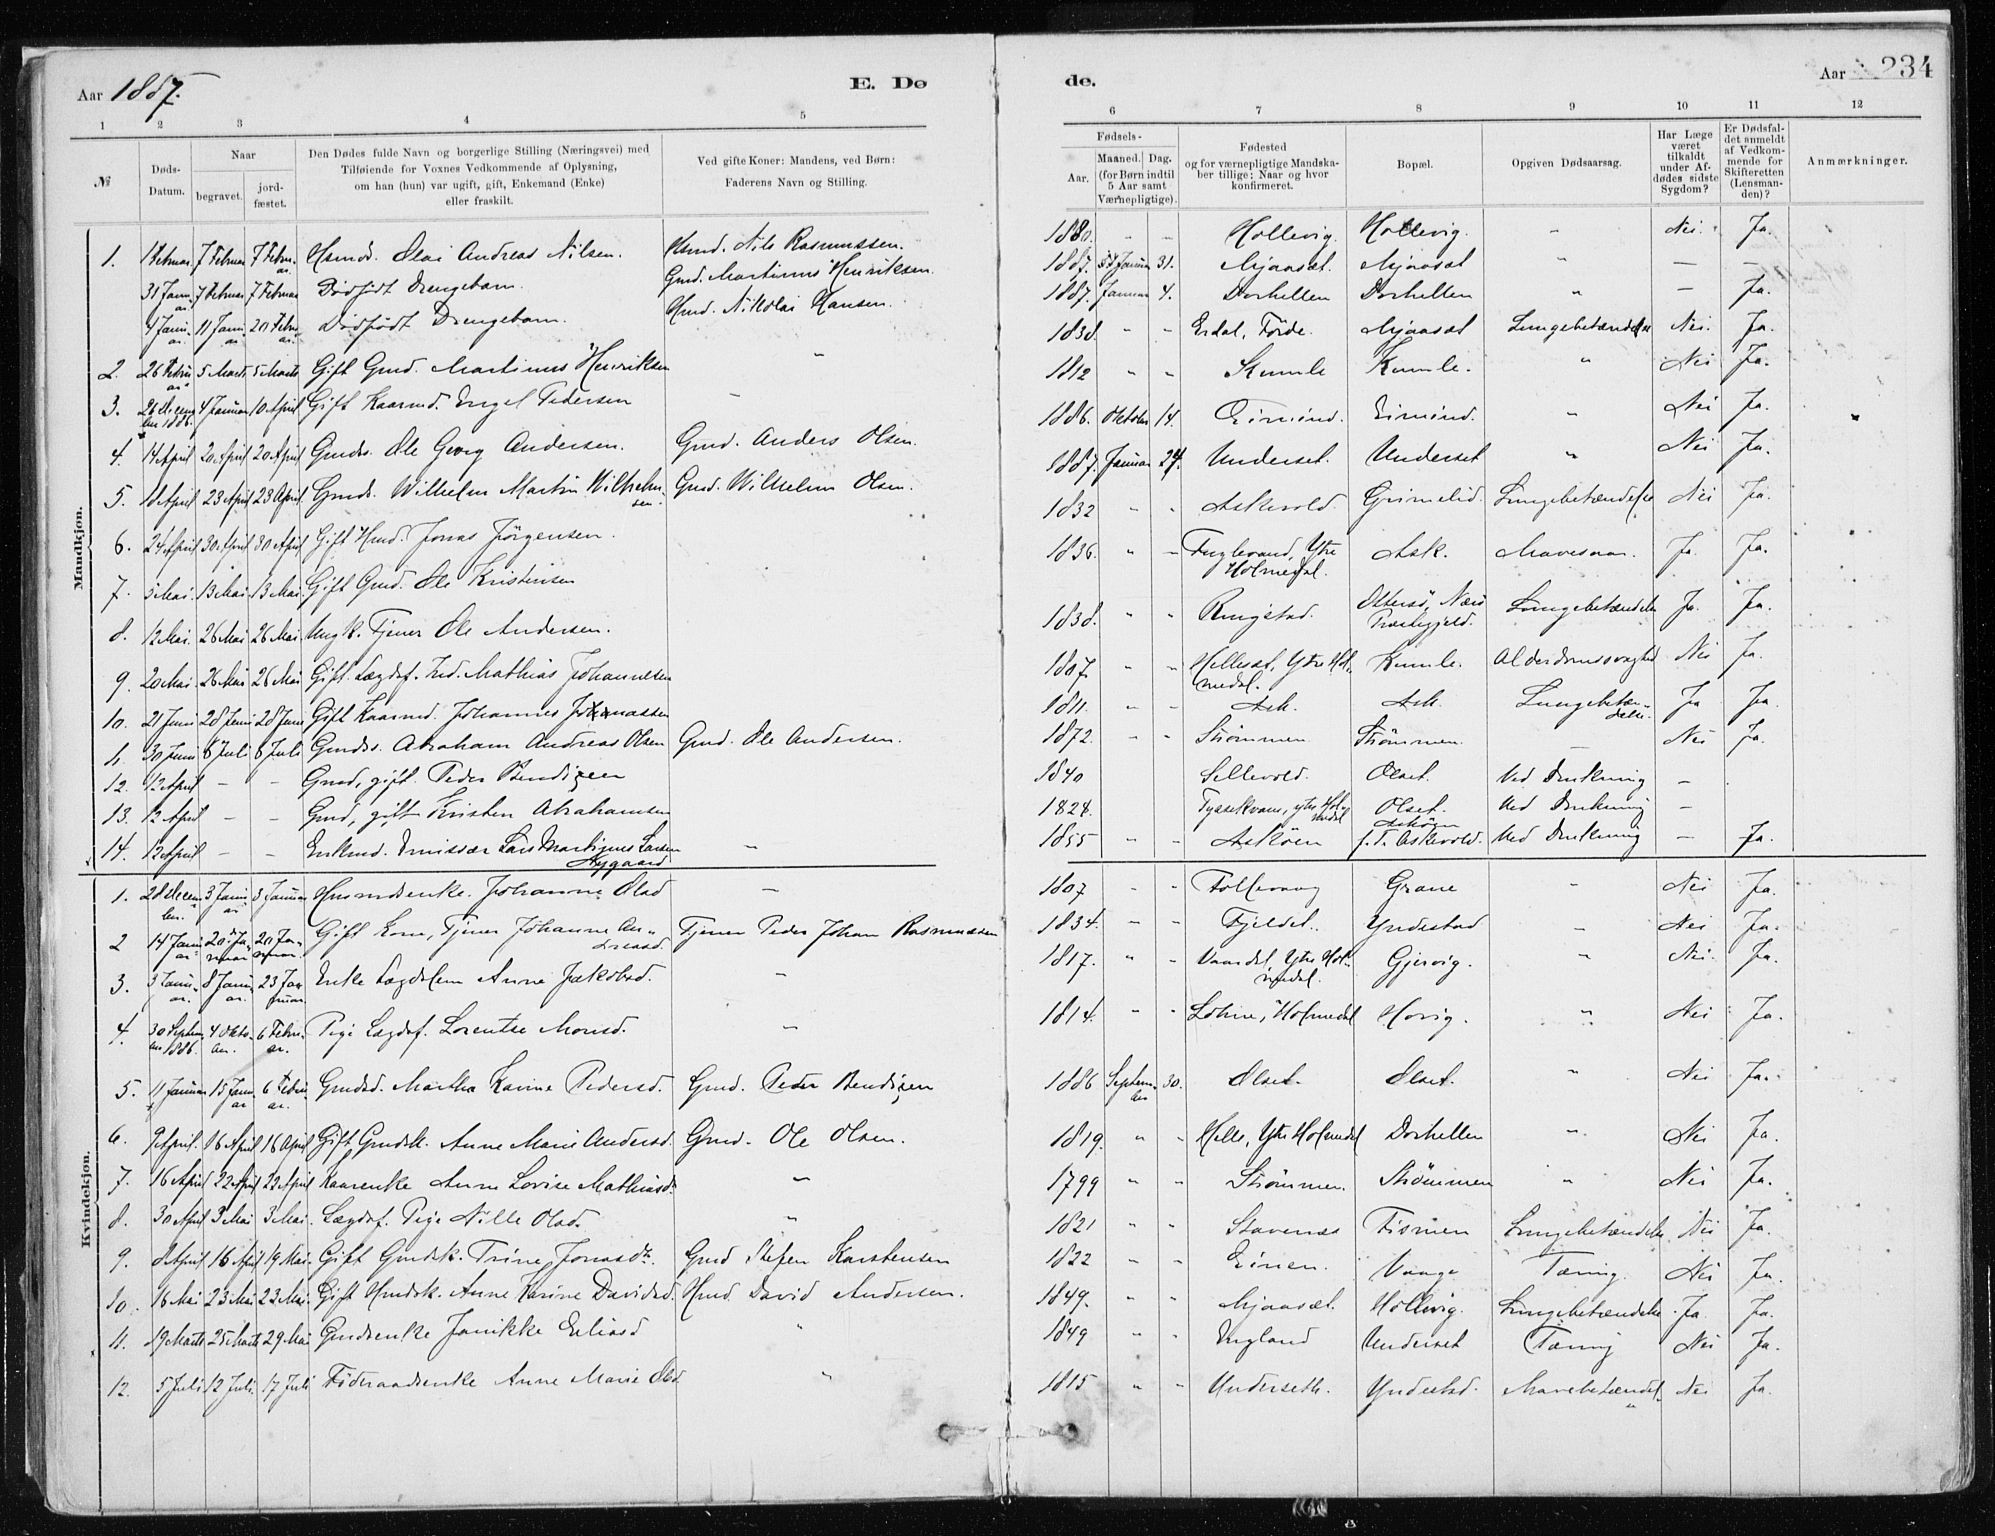 Aar 1887.
E. Dø
de.
Aar 234
1 2 3 4 5
6 7 8 9 10 11 12
№
Døds-Datum.
Naar
begravet.
jord-fæstet.
Den Dødes fulde Navn og borgerlige Stilling (Næringsvei) med
Tilføiende for Voxnes Vedkommende af Oplysning,
om han (hun) var ugift, gift, Enkemand (Enke)
eller fraskilt.
Ved gifte Koner: Mandens, ved Børn:
Faderens Navn og Stilling.
Fødsels-
Aar.
Maaned. Dag.
(for Børn indtil
5 Aar samt
Værnepligtige).
Fødested
og for værnepligtige Mandska-
ber tillige: Naar og hvor
konfirmeret.
Bopæl.
Opgiven Dødsaarsag.
Har Læge
været
tilkaldt
under Af-
dødes sidste
Sygdom?
Er Dødsfal-
det anmeldt
af Vedkom-
mende for
Skifteretten
(Lensman-
den)?
Anmærkninger.
Mandkjøn.
1. 1 Februar. 7 Februar 7 Februar. Olai Andreas Nilsen. Nils Rasmussen. 1880. " " Hollevig. Hollevig. " Nei. Ja.
31 Januar 7 Februar 7 Februar Dødfødt Drengebarn. Gmd. Martinus Henriksen 1887. Januar 31. Mjaaset. Mjaaset " — —
4 Januar. 11 Januar 20 Februar. Dødfødt Drengebarn. Hmd. Nikolai Hansen. 1887. Januar 4. Dorhellen Dorhellen " — Ja.
2. 26 Februar 5 Marts 5 Marts Gift Gmd. Martinus Henriksen " 1838. " " Erdal, Førde. Mjaaset Lungebetændelse Nei. Ja.
3. 26 Decem-ber 1886. 4 Januar 10 April Gift Kaarmd. Engel Pedersen — 1812 " " Kumle Kumle. " Nei Ja.
4. 14 April 20 April 20 April Gmds. Ole Georg Andersen. Gmd. Anders Olsen. 1886. Oktober 14. Eimind. Eimind. " Nei Ja.
5. 18 April 23 April 23 April Gmds. Wilhelm Martin Wilhelm-sen. Gmd. Wilhelm Olsen. 1887. Januar 24. Underset. Underset " Nei Ja.
6. 24 April 30 April 30 April Gift Hmd. Jonas Jørgensen. 1832 " " Askevold. Grimelid. Lungebetændelse Nei Ja.
7. 5 Mai. 13 Mai 13 Mai. Gift Gmd. Ole Kristensen 1836. " — Fuglevand, Ytre Holmedal. Ask. Mavesaar. Ja Ja.
8. 12 Mai. 26 Mai 26 Mai. Ungk. Tjener Ole Andersen. 1838. " " Ringstad. Ottersø, Nærø Præstegjeld. Lungebetændelse Ja. Ja.
9. 20 Mai. 26 Mai 26 Mai Gift Lægdsf. Ind. Mathias Johannessen 1807. " " Hellesæt, Ytre Hol-medal. Kumle. Alderdomssvaghed Nei Ja.
10. 21 Juni 28 Juni 28 Juni Gift Kaarmd. Johannes 1811. " " Ask. Ask. Lungebetæn-delse. Ja Ja.
11. 30 Juni 8 Juli 8 Juli Gmds. Abraham Andreas Olsen Gmd. Ole Andersen. 1872. " " Strømmen Strømmen. — Nei Ja.
12. 12 April — — Gmd, gift. Peder Bendixen 1840 Sellevold. Olset. Ved Drukning —
13. 12 April — — Gmd, gift Kristen Abrahamsen 1828. ytre Hol-medal Olset. Ved Drukning —
14. 12 April — — Enkmd. Emissær Lars Martinus Larsen Nygaard — 1855 " " Askøen Askøen f. T. Askevold. Ved Drukning — Ja.
Kvindekjøn.
1. 28 Decem-ber. 3 Januar 3 Januar Husmdsenke. Johanne Olsd — 1807 " " Tollevaag Grane " Nei Ja.
2 14 Januar 20 Ja-nuar 20 Ja-nuar Gift Kone, Tjener Johanne An-dreasd. Tjener Peder Johan Rasmussen 1834. " " Fjeldet. Yndestad — Nei Ja.
3. 3 Januar. 8 Januar. 23 Januar. Enke Lægdslem Anne Jakobsd. " 1817. " " Vaardal, Ytre Hol-medal. Gjervig. " Nei. Ja.
4. 30 Septem-ber 1886. 4 Okto-ber. 6 Februar. Pige Lægdsf. Lorentse Monsd. " 1814. " " Holmedal Horig. " Nei Ja.
5. 11 Januar 15 Januar 6 Februar. Gmdsd. Martha Karine Pedersd. Gmd. Peder Bendixen 1886 Septem-ber 30. Olset. Olset. " Nei Ja.
6. 9 April. 16 April 16 April Gift Gmdsk. Anne Marie Andersd. Gmd. Ole Olsen. 1819. " " Helle, Ytre Holmedal Dorhellen " Nei Ja.
7. 16 April 22 April 22 April Kaarenke Anne Lovise Mathiasd. " 1799 " " Strømmen. Strømmen " Nei Ja.
8. 30 April 3 Mai 3 Mai. Lægdsf. Pige Nille Olsd. " 1821 " " Stavenæs Lungebetændelse Nei Ja
9. 8 April 16 April 19 Mai. Gift Gmdsk. Trine Jonasdtr. Gmd Stefen Karstensen 1822 " " Einen. Vaage Tæring. Nei Ja.
10. 16 Mai 23 Mai 23 Mai. Gift Hmdsk. Anne Karine Davidsd. Hmd David Andersen. 1849. " " Mjaaset. Hollevig. Lungebetændelse. Ja Ja.
11. 19 Marts 25 Marts 29 Mai Gmdsenke Janikke Eliasd " 1849 " " England Underset Tæring Nei Ja.
12. 5 Juli. 12 Juli. 17 Juli Føderaadsenke Anne Marie Olsd " 1815 " " Underseth. Yndestad. Mavebetændel-se Nei Ja.